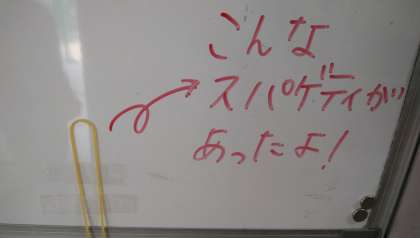 こんな
スパゲティが
あったよ!